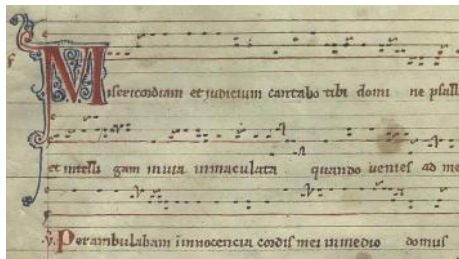 Misericordiam et judicium cantabo tibi domi ne psall
et intelli gam in uia inmaculata quando uenies ad me
℣. Perambulabam in innocencia cordis mei in medio domus